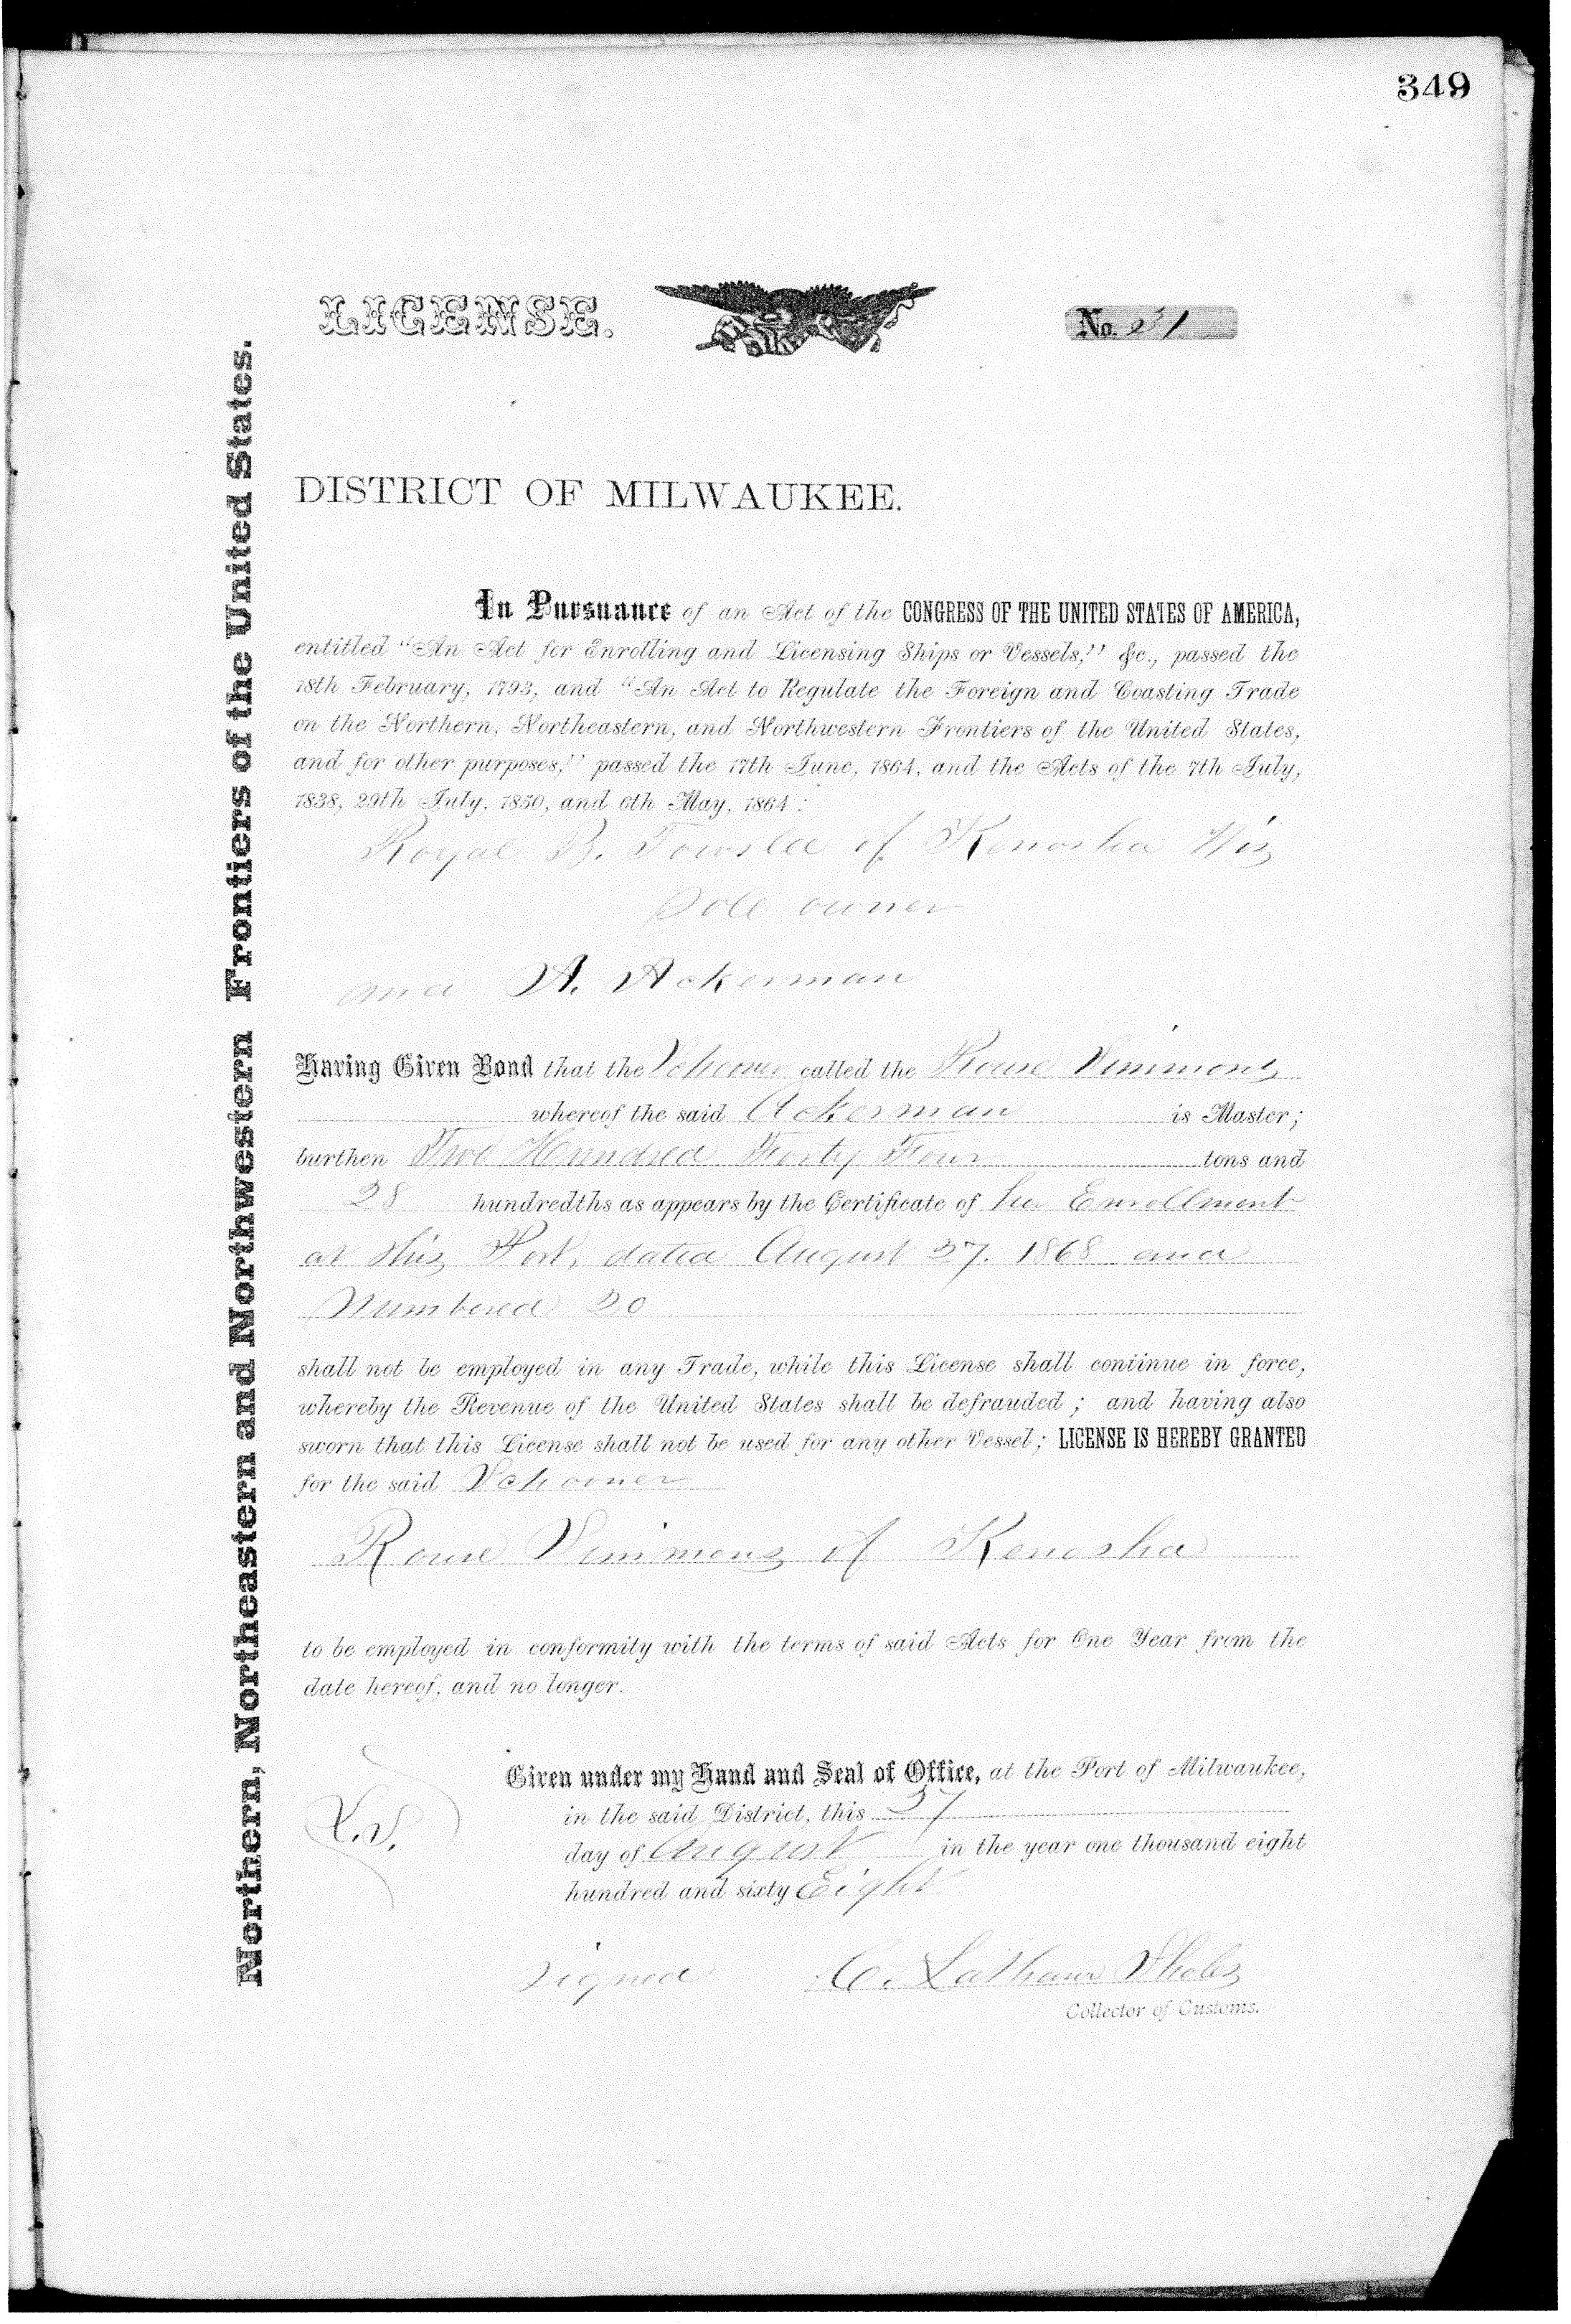 349
LICENSE.
No. 21
Northern, Northeastern and Northwestern Frontiers of the United States.
DISTRICT OF MILWAUKEE.
In Pursuance of an Act of the CONGRESS OF THE UNITED STATES OF AMERICA,
entitled "An Act for Enrolling and Licensing Ships or Vessels," &c., passed the
18th February, 1793, and "An Act to Regulate the Foreign and Coasting Trade
on the Northern, Northeastern, and Northwestern Frontiers of the United States,
and for other purposes," passed the 17th June, 1864, and the Acts of the 7th July,
1838, 29th July, 1850, and 6th May, 1864:
Royal B. Towslee of Kenosha Wis
Sole owner
and A. Ackerman
Having Given Bond that the Schooner called the Rouse Simmons
whereof the said Ackerman is Master;
burthen Two Hundred Forty Four tons and
28 hundredths as appears by the Certificate of her Enrollment
at this Port, dated August 27. 1868 and
Numbered 20
shall not be employed in any Trade, while this License shall continue in force,
whereby the Revenue of the United States shall be defrauded; and having also
sworn that this License shall not be used for any other Vessel; LICENSE IS HEREBY GRANTED
for the said Schooner
Rouse Simmons of Kenosha
to be employed in conformity with the terms of said Acts for One Year from the
date hereof, and no longer.
Given under my Hand and Seal of Office, at the Port of Milwaukee,
in the said District, this 27
L.S.
day of August in the year one thousand eight
hundred and sixty Eight
signed C. Latham Sholes
Collector of Customs.